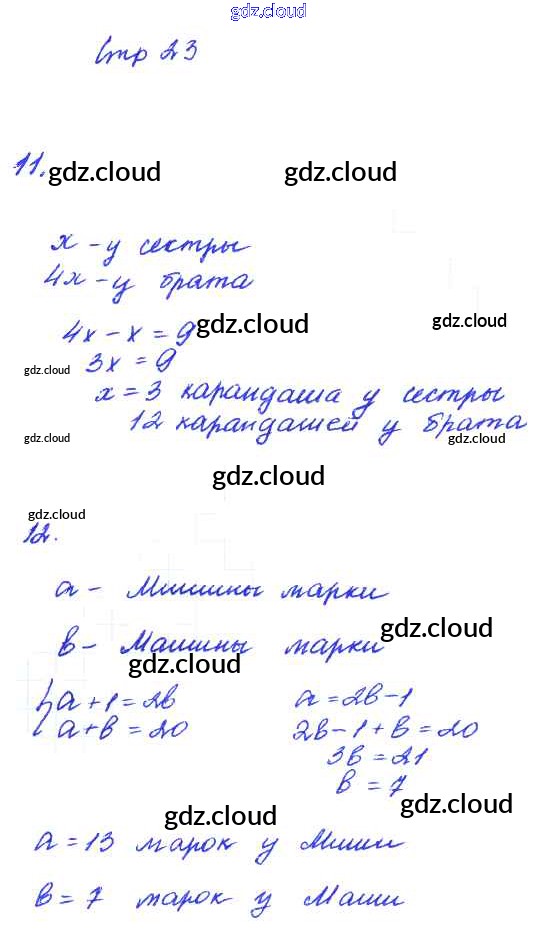 gdz.cloud
Стр 23
11. gdz.cloud gdz.cloud
x - у сестры
4x - у брата
4x - x = 9 gdz.cloud gdz.cloud
gdz.cloud 3x = 9
x = 3 карандаша у сестры
12 карандашей у брата
gdz.cloud gdz.cloud
gdz.cloud
gdz.cloud
12.
a - Мишины марки
gdz.cloud
b - Машины марки
gdz.cloud
{ a + 1 = 2b a = 2b - 1
a + b = 20 2b - 1 + b = 20
3b = 21
b = 7
gdz.cloud gdz.cloud
a = 13 марок у Миши
b = 7 марок у Маши